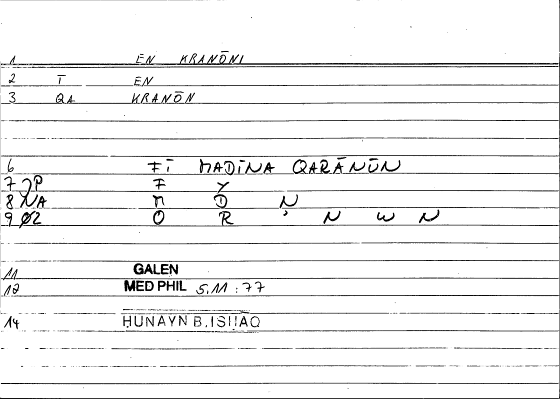 1 EN KRANŌNI
2 T EN
3 QA KRANŌN
6 FĪ MADĪNA QARĀNŪN
7 JP F Y
8 NA M D N
9 ØZ O R ' N W N
11 GALEN
12 MED PHIL S.11 : 77
14 HUNAYN B. ISHAQ